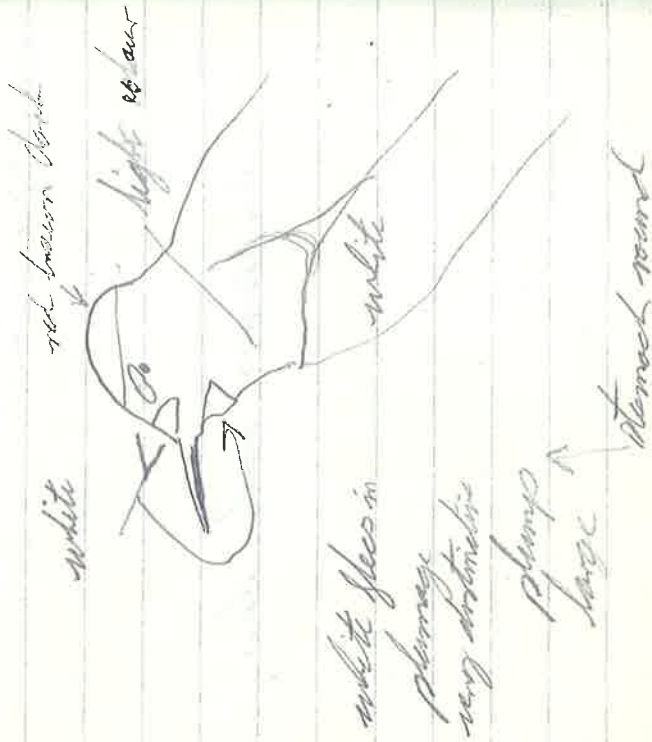 red brown
white
light
white
white flecs in
plumage
very distinctive
plump
large
stomach round